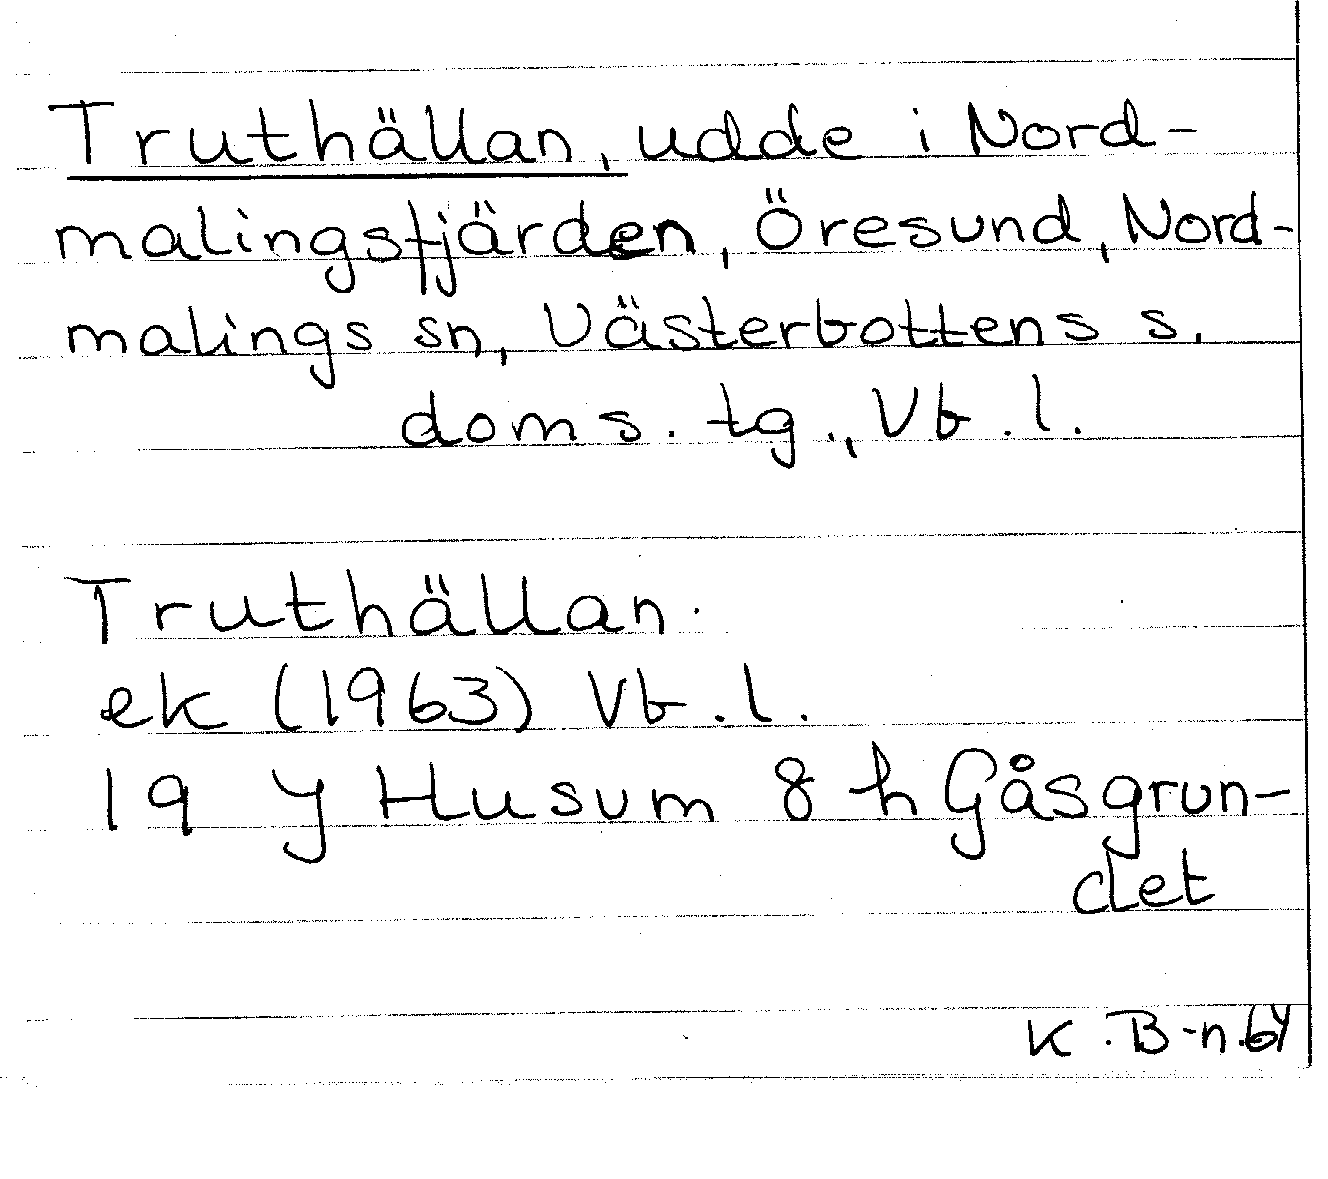 Truthällan, udde i Nord-
malingsfjärden, Öresund, Nord-
malings sn, Västerbottens s.
doms. tg., Vb. l.
Truthällan.
ek (1963) Vb. l.
19 J Husum 8 h Gåsgrun-
det
K. B-n. 64